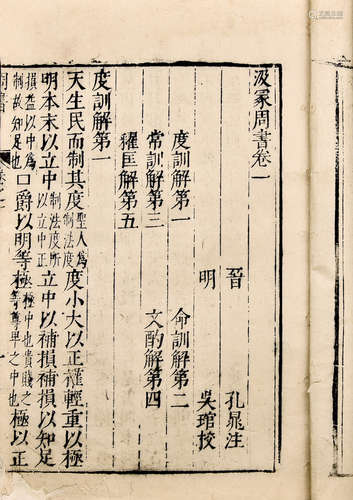 汲冢周書卷一
晉　孔晁注
明　吳琯校
度訓解第一　命訓解第二
常訓解第三　文酌解第四
糴匡解第五
度訓解第一
天生民而制其度聖人爲制法度度小大以正權輕重以極
明本末以立中制法度所以立中正立中以補損補損以知足
損益以中爲制故知足也口爵以明等極極中也貴賤之等尊卑之中也極以正